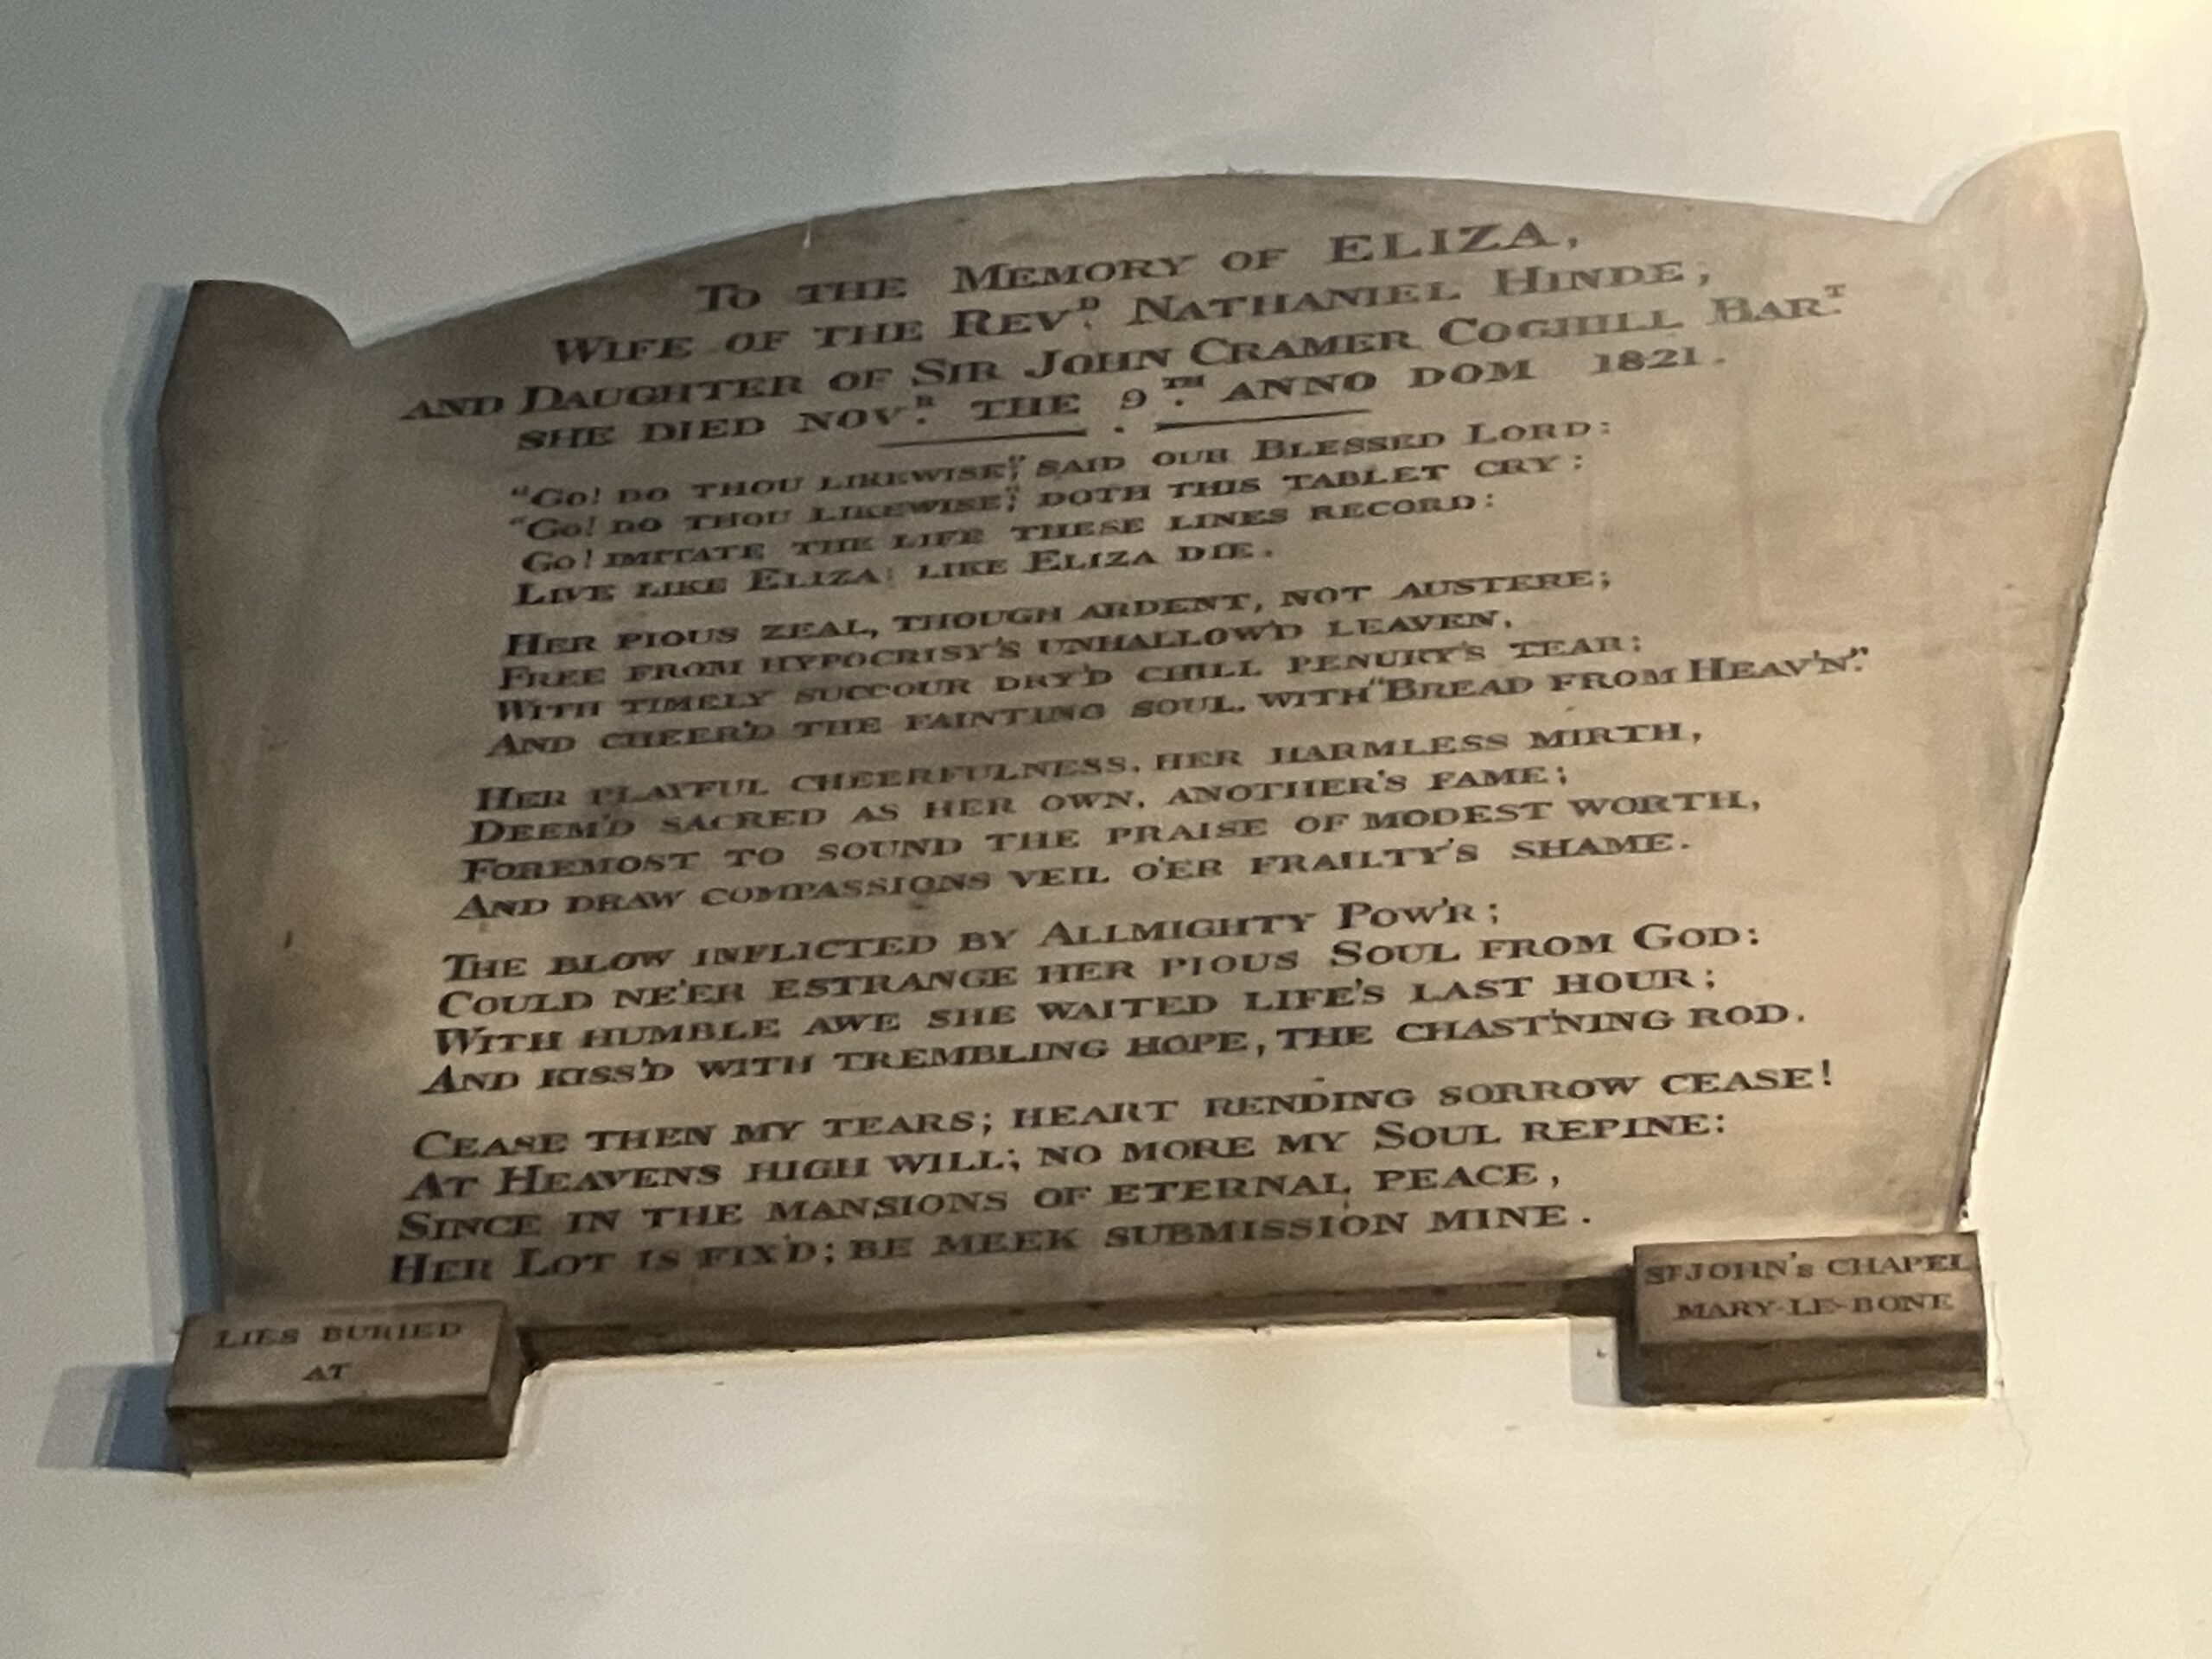 To the Memory of ELIZA,
Wife of the Revᴰ. Nathaniel Hinde,
and Daughter of Sir John Cramer Coghill Barᵀ.
she died Novᴿ. the 9ᵀᴴ. anno dom 1821.
"Go! do thou likewise", said our Blessed Lord:
"Go! do thou likewise", doth this tablet cry:
Go! imitate the life these lines record:
Live like Eliza: like Eliza die.
Her pious zeal, though ardent, not austere;
Free from hypocrisy's unhallow'd leaven,
With timely succour dry'd chill penury's tear;
And cheer'd the fainting soul, with "Bread from Heav'n."
Her playful cheerfulness, her harmless mirth,
Deem'd sacred as her own, another's fame;
Foremost to sound the praise of modest worth,
And draw compassions veil o'er frailty's shame.
The blow inflicted by Allmighty Pow'r;
Could ne'er estrange her pious Soul from God:
With humble awe she waited life's last hour;
And kiss'd with trembling hope, the chast'ning rod.
Cease then my tears; heart rending sorrow cease!
At Heavens high will; no more my Soul repine:
Since in the mansions of eternal peace,
Her Lot is fix'd; be meek submission mine.
LIES BURIED
AT
ST JOHN's CHAPEL
MARY-LE-BONE